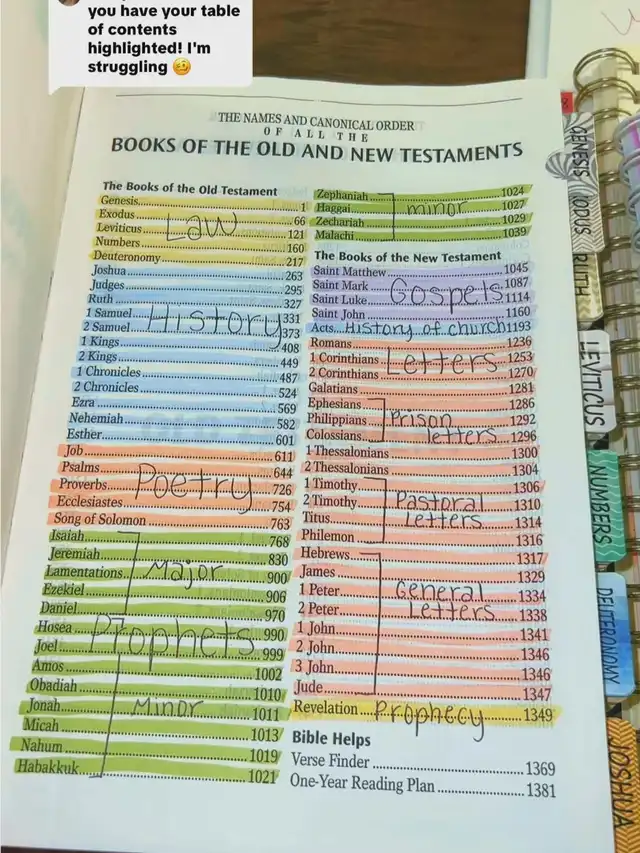 you have your table
of contents
highlighted! I'm
struggling 🥴
THE NAMES AND CANONICAL ORDER
OF ALL THE
BOOKS OF THE OLD AND NEW TESTAMENTS
The Books of the Old Testament
Genesis 1
Exodus 66
Leviticus 121
Law
Numbers 160
Deuteronomy 217
Joshua 263
Judges 295
Ruth 327
1 Samuel 331
History
2 Samuel 373
1 Kings 408
2 Kings 449
1 Chronicles 487
2 Chronicles 524
Ezra 569
Nehemiah 582
Esther 601
Job 611
Psalms 644
Proverbs 726
Poetry
Ecclesiastes 754
Song of Solomon 763
Isaiah 768
Jeremiah 830
Lamentations 900
Major
Ezekiel 906
Daniel 970
Hosea 990
Prophets
Joel 999
Amos 1002
Obadiah 1010
Jonah 1011
Minor
Micah 1013
Nahum 1019
Habakkuk 1021
Zephaniah 1024
Haggai 1027
minor
Zechariah 1029
Malachi 1039
The Books of the New Testament
Saint Matthew 1045
Saint Mark 1087
Gospels
Saint Luke 1114
Saint John 1160
Acts History of church 1193
Romans 1236
1 Corinthians 1253
Letters
2 Corinthians 1270
Galatians 1281
Ephesians 1286
Philippians 1292
Prison
letters
Colossians 1296
1 Thessalonians 1300
2 Thessalonians 1304
1 Timothy 1306
2 Timothy 1310
Pastoral
Letters
Titus 1314
Philemon 1316
Hebrews 1317
James 1329
1 Peter 1334
General
Letters
2 Peter 1338
1 John 1341
2 John 1346
3 John 1346
Jude 1347
Revelation Prophecy 1349
Bible Helps
Verse Finder 1369
One-Year Reading Plan 1381
GENESIS
RUTH
LEVITICUS
NUMBERS
DEUTERONOMY
JOSHUA